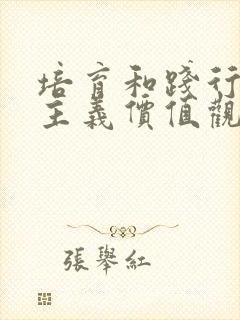 培育和踐行
主義價值觀
張舉紅